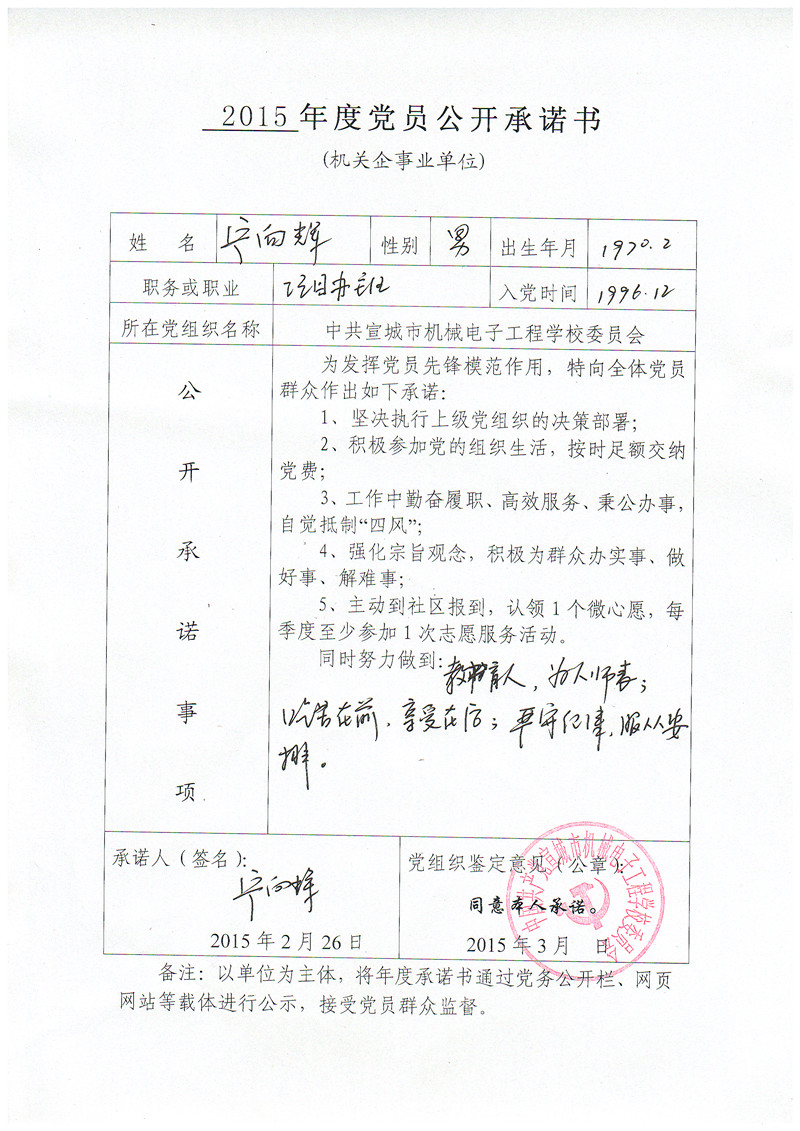 2015 年度党员公开承诺书
(机关企事业单位)
姓 名 宁向辉 性别 男 出生年月 1970.2
职务或职业 项目办主任 入党时间 1996.12
所在党组织名称 中共宣城市机械电子工程学校委员会
公开承诺事项
为发挥党员先锋模范作用，特向全体党员
群众作出如下承诺：
1、坚决执行上级党组织的决策部署；
2、积极参加党的组织生活，按时足额交纳
党费；
3、工作中勤奋履职、高效服务、秉公办事，
自觉抵制“四风”；
4、强化宗旨观念，积极为群众办实事、做
好事、解难事；
5、主动到社区报到，认领 1 个微心愿，每
季度至少参加 1 次志愿服务活动。
同时努力做到：教书育人，为人师表；
吃苦在前，享受在后；严守纪律，服从安
排。
承诺人（签名）：
宁向辉
2015 年 2 月 26 日
党组织鉴定意见（公章）：
同意本人承诺。
2015 年 3 月 日
中国共产党宣城市机械电子工程学校委员会
备注：以单位为主体，将年度承诺书通过党务公开栏、网页
网站等载体进行公示，接受党员群众监督。